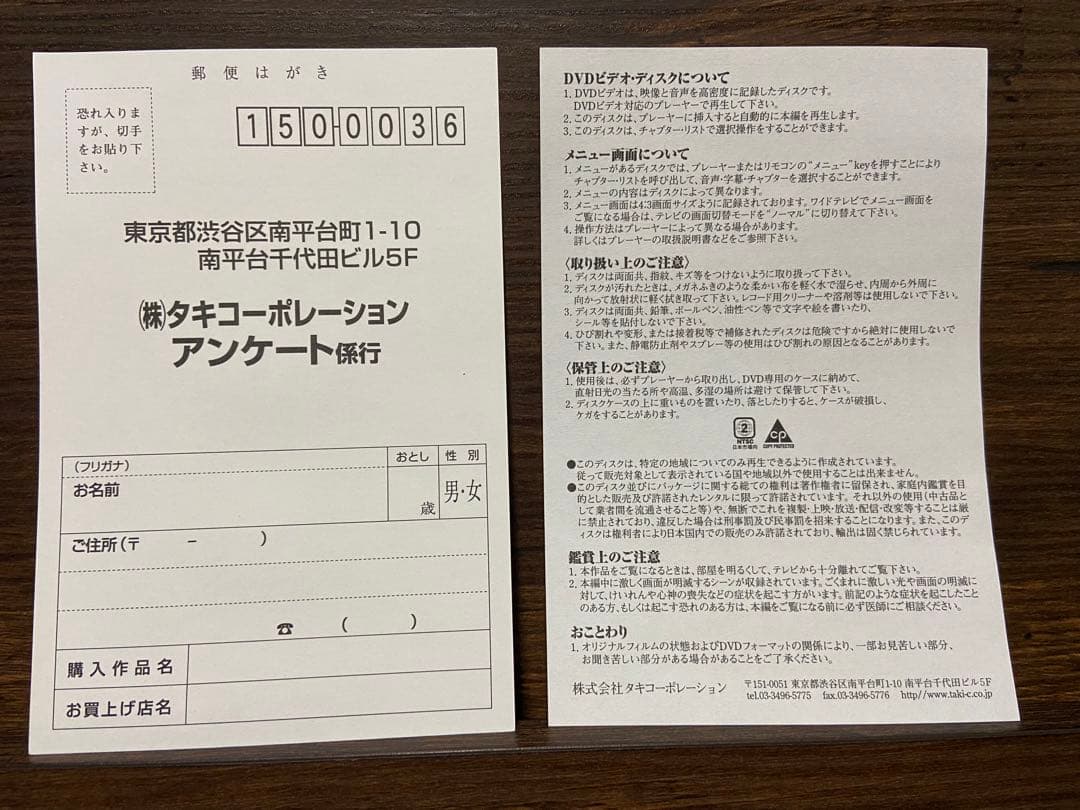 郵便はがき
恐れ入りま
すが、切手
をお貼り下
さい。
150-0036
東京都渋谷区南平台町1-10
南平台千代田ビル5F
㈱タキコーポレーション
アンケート係行
(フリガナ)
おとし
性別
お名前
歳
男・女
ご住所(〒　－　)
☎　(　)
購入作品名
お買上げ店名
DVDビデオ・ディスクについて
1. DVDビデオは、映像と音声を高密度に記録したディスクです。
DVDビデオ対応のプレーヤーで再生して下さい。
2. このディスクは、プレーヤーに挿入すると自動的に本編を再生します。
3. このディスクは、チャプター・リストで選択操作をすることができます。
メニュー画面について
1. メニューがあるディスクでは、プレーヤーまたはリモコンの“メニュー”keyを押すことにより
チャプター・リストを呼び出して、音声・字幕・チャプターを選択することができます。
2. メニューの内容はディスクによって異なります。
3. メニュー画面は4:3画面サイズように記録されております。ワイドテレビでメニュー画面を
ご覧になる場合は、テレビの画面切替モードを“ノーマル”に切り替えて下さい。
4. 操作方法はプレーヤーによって異なる場合があります。
詳しくはプレーヤーの取扱説明書などをご参照下さい。
〈取り扱い上のご注意〉
1. ディスクは両面共、指紋、キズ等をつけないように取り扱って下さい。
2. ディスクが汚れたときは、メガネふきのような柔かい布を軽く水で湿らせ、内周から外周に
向かって放射状に軽く拭き取って下さい。レコード用クリーナーや溶剤等は使用しないで下さい。
3. ディスクは両面共、鉛筆、ボールペン、油性ペン等で文字や絵を書いたり、
シール等を貼付しないで下さい。
4. ひび割れや変形、または接着税等で補修されたディスクは危険ですから絶対に使用しないで
下さい。また、静電防止剤やスプレー等の使用はひび割れの原因となることがあります。
〈保管上のご注意〉
1. 使用後は、必ずプレーヤーから取り出し、DVD専用のケースに納めて、
直射日光の当たる所や高温、多湿の場所は避けて保管して下さい。
2. ディスクケースの上に重いものを置いたり、落としたりすると、ケースが破損し、
ケガをすることがあります。
2
NTSC
日本市場向
CP
COPY PROTECTED
●このディスクは、特定の地域についてのみ再生できるように作成されています。
従って販売対象として表示されている国や地域以外で使用することは出来ません。
●このディスク並びにパッケージに関する総ての権利は著作権者に留保され、家庭内鑑賞を目
的とした販売及び許諾されたレンタルに限って許諾されています。それ以外の使用(中古品と
して業者間を流通させること等)や、無断でこれを複製・上映・放送・配信・改変等することは厳
に禁止されており、違反した場合は刑事罰及び民事罰を招来することになります。また、このデ
ィスクは権利者により日本国内での販売のみ許諾されており、輸出は固く禁じられています。
鑑賞上のご注意
1. 本作品をご覧になるときは、部屋を明るくして、テレビから十分離れてご覧下さい。
2. 本編中に激しく画面が明滅するシーンが収録されています。ごくまれに激しい光や画面の明滅に
対して、けいれんや心神の喪失などの症状を起こす方がいます。前記のような症状を起こしたこと
のある方、もしくは起こす恐れのある方は、本編をご覧になる前に必ず医師にご相談ください。
おことわり
1. オリジナルフィルムの状態およびDVDフォーマットの関係により、一部お見苦しい部分、
お聞き苦しい部分がある場合があることをご了承ください。
株式会社タキコーポレーション
〒151-0051 東京都渋谷区南平台町1-10 南平台千代田ビル5F
tel.03-3496-5775　fax.03-3496-5776　http//www.taki-c.co.jp